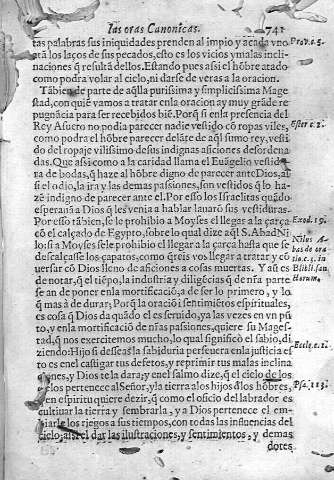 las oras Canonicas. 741
tas palabras sus iniquidades prenden al impio y a cada vno
ata los laços de sus pecados, esto es los vicios y malas incli-
naciones q̃ resultã dellos. Estando pues assi el hõbre atado
como podra volar al cielo, ni darse de veras a la oracion.
Tãbien de parte de aq̃lla purissima y simplicissima Mage
stad, con quiẽ vamos a tratar en la oracion ay muy grãde re
pugnãcia para ser recebidos biẽ. Porq̃ si en la presencia del
Rey Asuero no podia parecer nadie vestido cõ ropas viles,
como podra el hõbre parecer delãte de aq̃l sumo rey, vesti
do del ropaje vilissimo de sus indignas aficiones desordena
das. Que assi como a la caridad llama el Euãgelio vestidu
ra de bodas, q̃ haze al hõbre digno de parecer ante Dios, assi
el odio, la ira y las demas passiones, son vestidos q̃ lo ha-
zẽ indigno de parecer ante el. Por esso los Israelitas quãdo
esperauã a Dios q̃ les venia a hablar lauarõ sus vestiduras.
Por esso tãbien, se le prohibio a Moyses el llegar a la çarça
cõ el calçado de Egypto, sobre lo qual dize aq̃l S. Abad Ni
lo: si a Moyses se le prohibio el llegar a la çarça hasta que se
descalçasse los çapatos, como q̃reis vos llegar a tratar y cõ
uersar cõ Dios lleno de aficiones a cosas muertas. Y aũ es
de notar, q̃ el tiẽpo, la industria y diligẽcias q̃ de nr̃a parte
se an de poner en la mortificaciõ, a de ser lo primero, y lo
q̃ mas a de durar; Porq̃ la oraciõ i sentimiẽtos espirituales,
es cosa q̃ Dios da quãdo el es seruido, ya las vezes en vn pũ
to, y en la mortificaciõ de nr̃as passiones, quiere su Mages-
tad, q̃ nos exercitemos mucho, lo qual significò el sabio, di
ziendo: Hijo si desseas la sabiduria perseuera en la justicia es
to es en el castigar tus defetos, y reprimir tus malas inclina
ciones, y Dios te la dara; y en el salmo dize, q̃ el cielo de los
cielos pertenece al Señor, y la tierra a los hijos d̃ los hõbres,
en espiritu quiere dezir, q̃ como el oficio del labrador es
cultiuar la tierra y sembrarla, y a Dios pertenece el em-
biarle los riegos a sus tiempos, con todas las influencias del
cielo; assi el dar las ilustraciones, y sentimientos, y demas
dotes
Prou. c. 5.
Ester c. 2.
Exod. 19.
Nilus A-
bas de ora
tio. c. 5. in
Bibli. san
ctorum.
Eccle. c. 1.
Psa. 113.